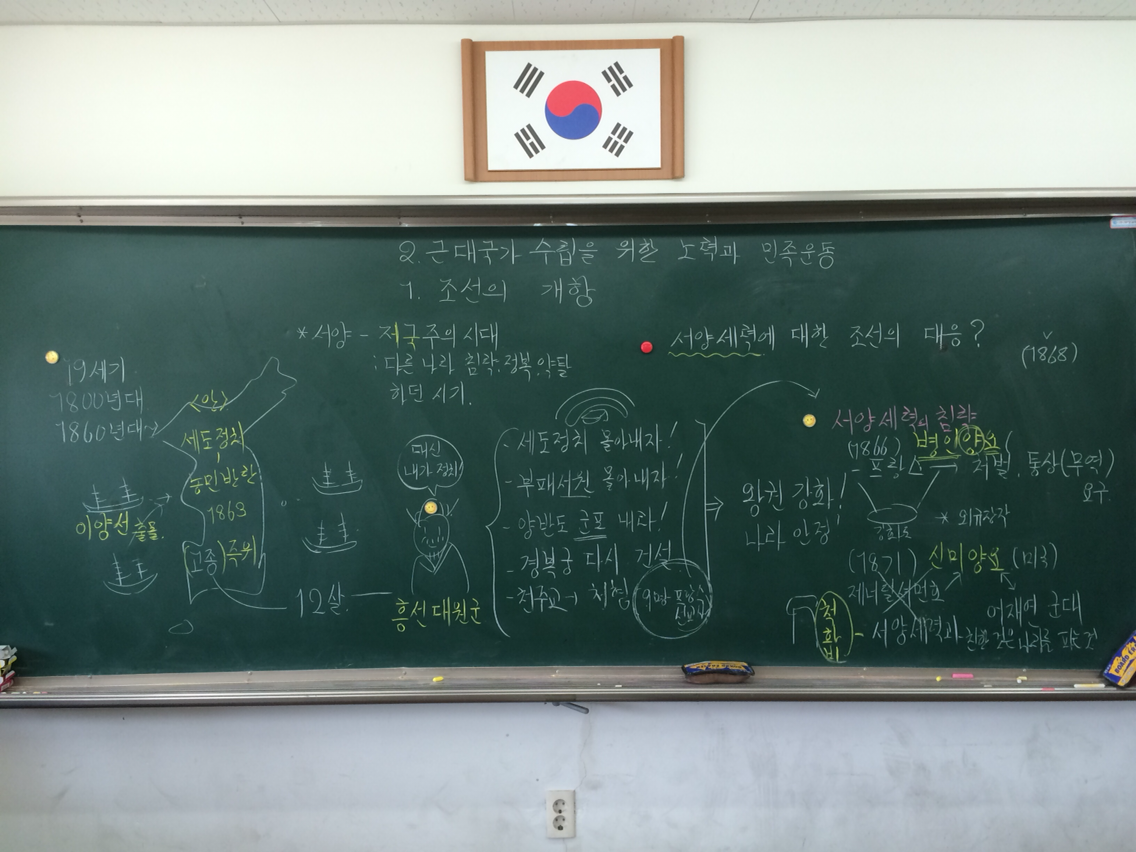 2. 근대국가 수립을 위한 노력과 민족운동
1. 조선의 개항
* 서양 - 제국주의 시대
: 다른 나라 침략, 정복, 약탈
하던 시기.
19세기
1800년대
1860년대
<안>
세도정치
농민반란
1863
고종 즉위
이양선 출몰
12살
대신
내가 정치!
흥선대원군
- 세도정치 몰아내자!
- 부패서원 몰아내자!
- 양반도 군포 내라!
- 경복궁 다시 건설
- 천주교 → 처형
9명 프랑스
⇒ 왕권 강화!
나라 안정!
서양세력에 대한 조선의 대응?
(1868)
서양세력의 침략
(1866) 병인양요
- 프랑스 처벌, 통상(무역)
요구.
강화도
* 외규장각
(1871) 신미양요 (미국)
제너럴셔먼호
어재연 군대
척화비 - 서양세력과 친한 것은 나라를 파는 것